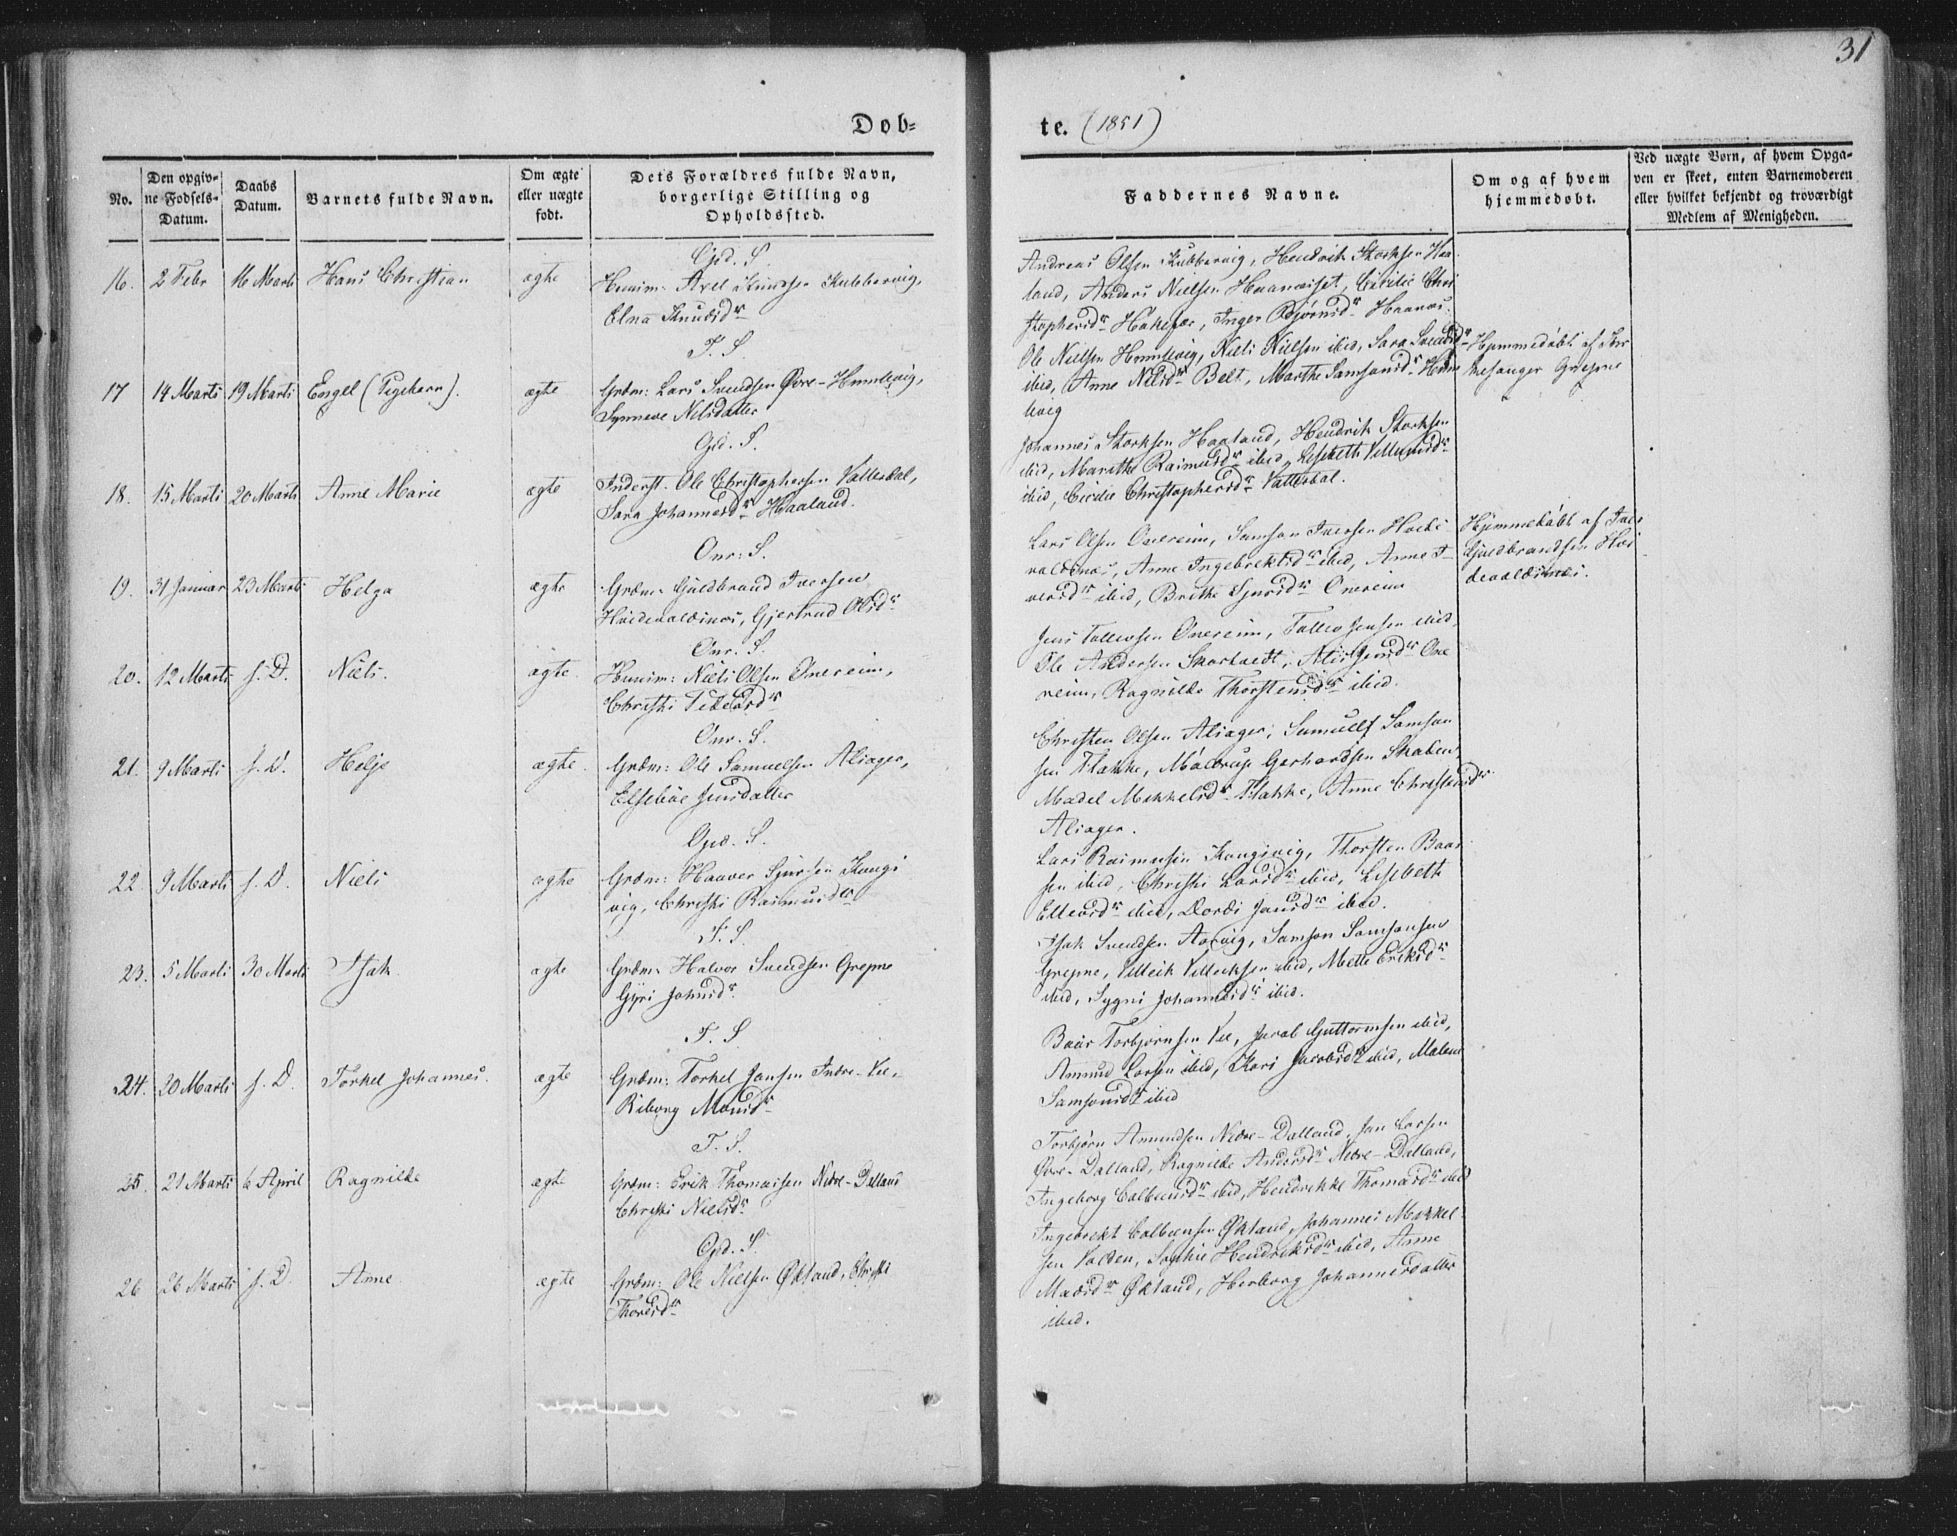 31
Døb-
te. (1851)
No.
Den opgiv-
ne Fødsels-
Datum.
Daabs
Datum.
Barnets fulde Navn.
Om ægte
eller uægte
født.
Dets Forældres fulde Navn,
borgerlige Stilling og
Opholdssted.
Faddernes Navne.
Om og af hvem
hjemmedøbt.
Ved uægte Børn, af hvem Opga-
ven er skeet, enten Barnemoderen
eller hvilket bekjendt og troværdigt
Medlem af Menigheden.
Gjd. S
16. 2 Febr 16 Marts Hans Christian ægte Huusm: Axel Knudsen Kubbervig,
Elna Knudsdr
Andreas Olsen Kubbervig, Hendrik Storksen Haa
land, Anders Nielsen Haanæsset, Cicilie Chri
stophersdr Hakefær, Inger Bjørnsd. Haanæs.
T. S
17 14 Marts 19 Marts Engel (Pigebarn). ægte Grdm: Lars Svendsen Øvre-Humlevig,
Synneve Nelsdatter
Ole Nielsen Humlevig, Niels Nielsen ibid, Sara Svendsdr
ibid, Anne Nelsdr Belt, Marthe Samsonsdr Hum
levig
Hjemmedøbt af
Grepne
Gjd. S.
18. 15 Marts 20 Marts Anne Marie ægte Inderst. Ole Christophersen Vattedal,
Sara Johannesdr Haaland.
Johannes Storksen Haaland, Hendrik Storksen
ibid, Marithe Rasmusdr ibid, Lisbeth
ibid, Cicilie Christophersdr Vattedal.
Onr: S.
19. 31 Januar 23 Marts Helga ægte Grdm: Guldbrand Iversen
Hvidevaldsnæs, Gjertrud Olsdr
Lars Olsen Onereim, Samson Iversen Hvide-
valdsnæs, Anne Ingebrektsdr ibid, Anne I-
versdr ibid, Brithe Sjursdr Onereim
Hjemmedøbt af Iver
Guldbrandsen Hvi-
devaldsnæs.
Onr. S.
20. 12 Marts s. D. Niels. ægte. Huusm: Niels Olsen Onereim,
Christi
Jens Tollevsen Onereim, Tollev Jensen ibid,
Ole Andersen Skartvedt, One
reim, Ragnilde Thorstensdr ibid.
Onr. S.
21. 9 Marts s. D. Helje ægte. Grdm: Ole Samuelsen Aliager,
Elsebøe Jensdatter
Christen Olsen Aliager, Samuel Samson
sen Flakke, Gerhardsen Skaden
Madel Mikkelsd. Flakke, Anne Christensdr
Aliager.
Gjd. S.
22 9 Marts s. D. Niels ægte Grdm: Haaver Sjursen Kongs
vig, Christi Rasmusdr
Lars Rasmusen Kongsvig, Thorsten Baar
sen ibid, Christi Larsdr ibid, Lisbeth
ibid, Dordi Jansdr ibid.
T. S.
23. 5 Marts 30 Marts Isak ægte Grdm: Halvor Svendsen Grepne
Gyri Johnsdr
Isak Svendsen Aarvig, Samson Samsonsen
Grepne, Villeik Villeiksen ibid, Mette Eriksdr
ibid, Sygni Johannesdr ibid.
T. S
24. 20 Marts s. D. Torkel Johannes. ægte Grdm: Torkel Jansen Indre-Vee,
Riborg Monsdr
Baar Torbjørnsen Vee, Jacob Guttormsen ibid,
Amund Larsen ibid, Kari Jacobsdr ibid, Malene
Samsonsdr ibid
T. S.
25. 21 Marts 6 April Ragnilde ægte Grdm: Erik Thomassen Nedre-Dalland
Christi Nielsdr
Torbjørn Amundsen Nedre-Dalland, Jan Larsen
Øvre-Dalland, Ragnilde Andersdr Nedre-Dalland,
Ingeborg Colbeensdr ibid, Hendrikke Thomasdr ibid
Gjd. S.
26 26 Marts s. D. Anne ægte Grdm: Ole Nielsen Økland, Christi
Thoresdr
Ingebrekt Colbeensen Økland, Johannes Mikkel
sen Valden, Sophie Hendriksdr ibid, Anne
Madsdr Økland, Herborg Johannesdatter
ibid.